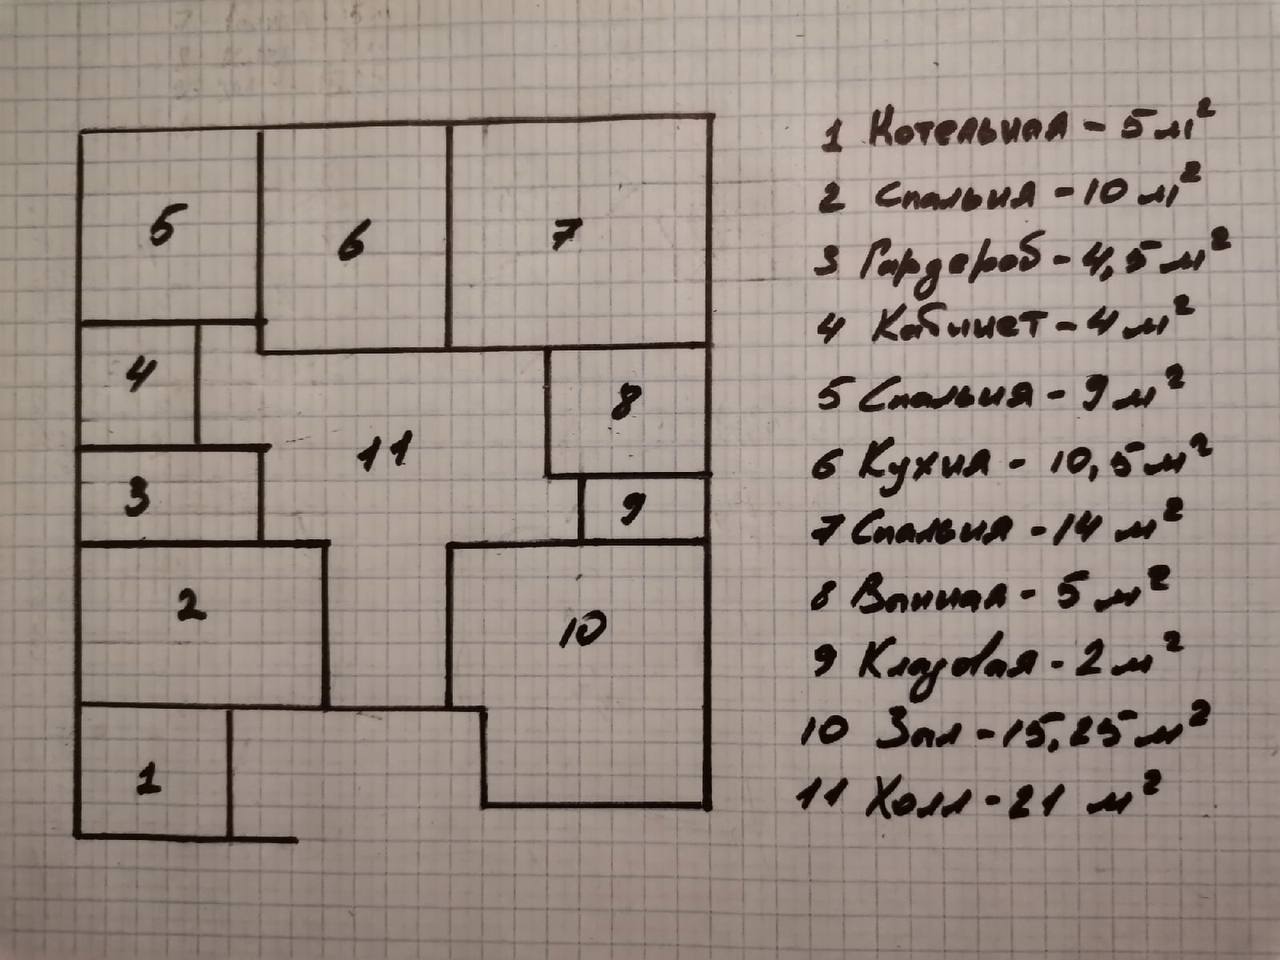 5
6
7
4
8
11
3
9
2
10
1
1 Котельная - 5 м²
2 Спальня - 10 м²
3 Гардероб - 4,5 м²
4 Кабинет - 4 м²
5 Спальня - 9 м²
6 Кухня - 10,5 м²
7 Спальня - 14 м²
8 Ванная - 5 м²
9 Кладовая - 2 м²
10 Зал - 15,25 м²
11 Холл - 21 м²